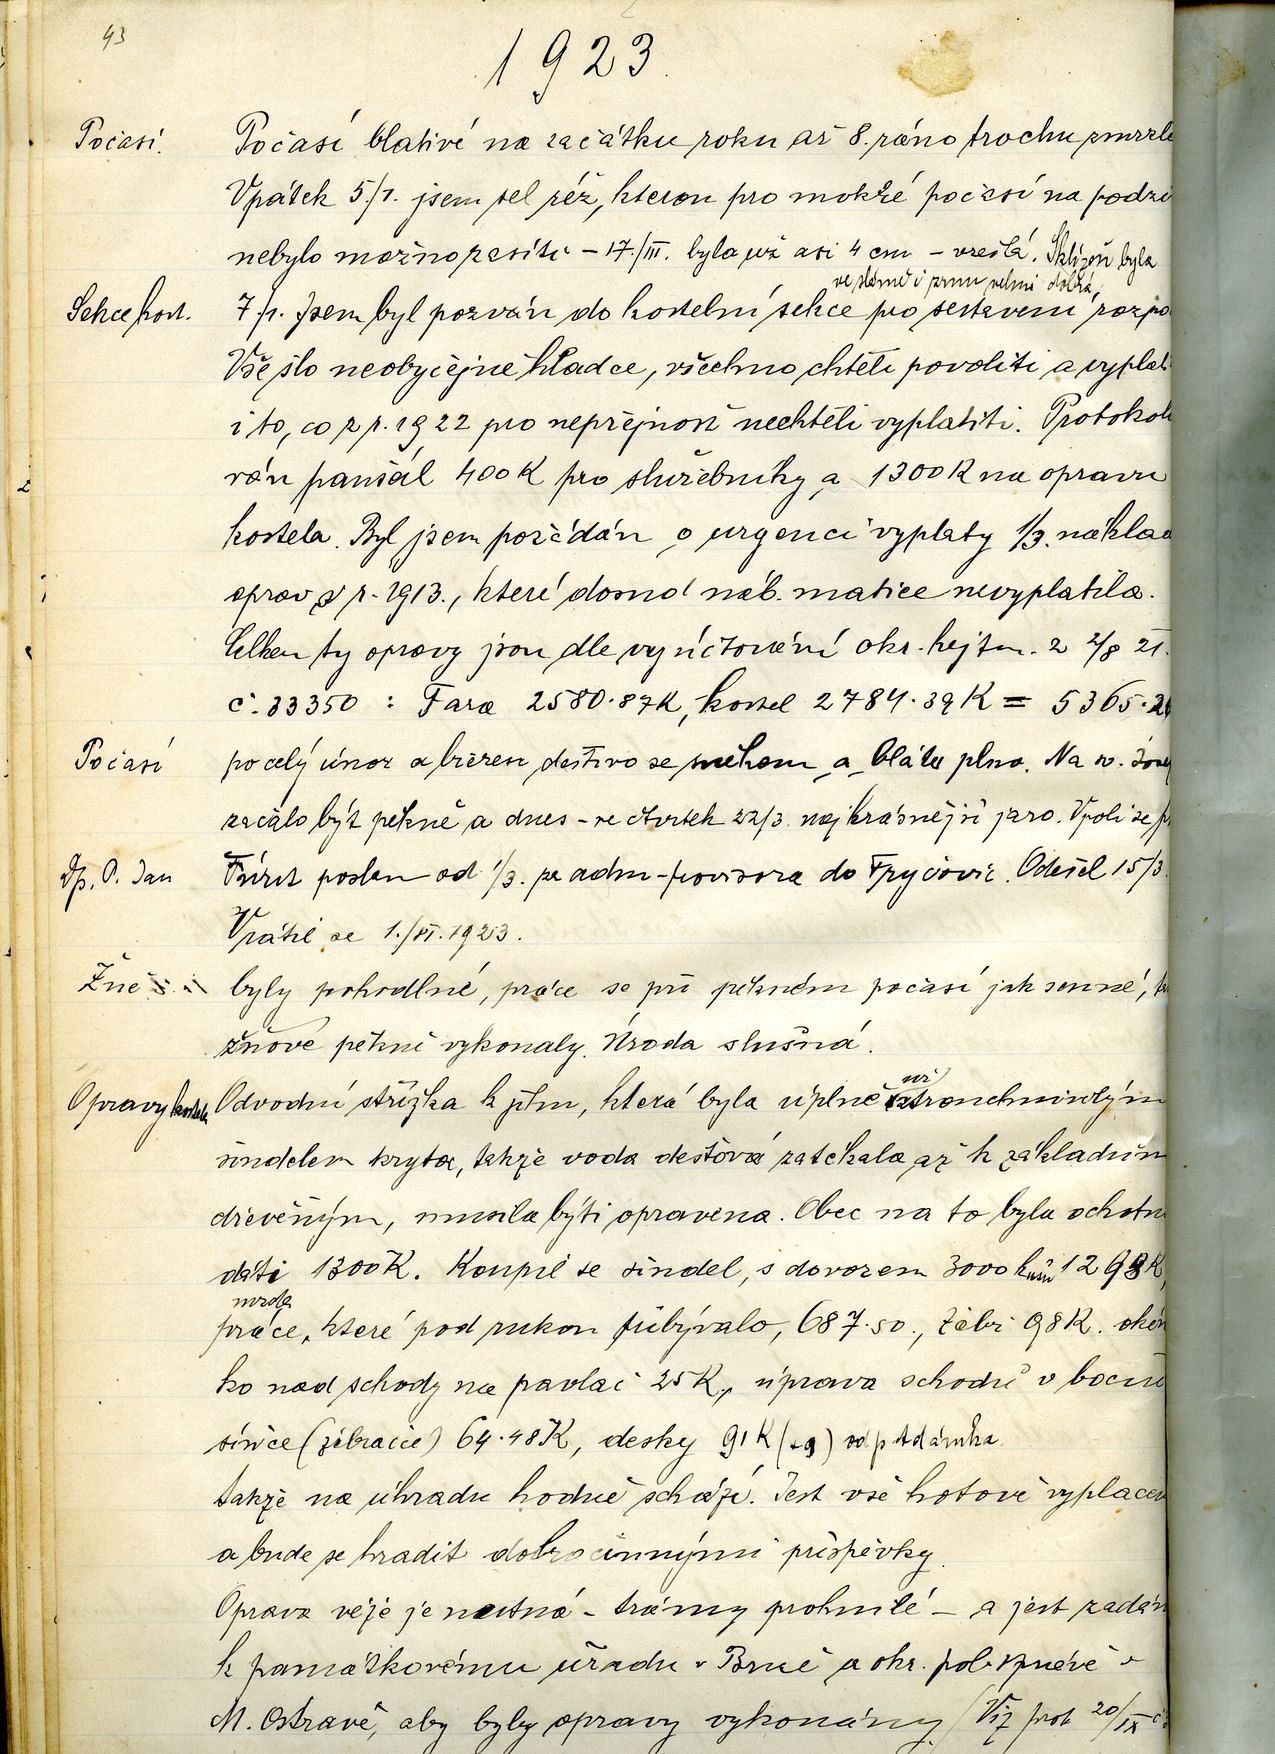 43
1923
Počasí. Počasí blativé na začátku roku až 8. ráno trochu zmrzlo
V pátek 5./1. jsem sel réž, kterou pro mokré počasí na podzi
nebylo možno zasíti – 17./III. byla už asi 4 cm – vzešlá. Sklizeň byla
ve slámě i zrnu velmi dobrá.
Sekce kost. 7./1. jsem byl pozván do kostelní sekce pro sestavení rozpo
Vše šlo neobyčejně hladce, všechno chtěli povoliti a vyplati
i to, co z r. 1922 pro nepřejnost nechtěli vyplatiti. Protokolo
ván paušál 400 K pro služebníky a 1300 K na opravu
kostela. Byl jsem požádán o urgenci výplaty 1/3. náklad
oprav z r. 1913., které dosud náb. matice nevyplatila.
Celkem ty opravy jsou dle vyúčtování okr. hejtm. z 2/8 21.
č. 33350 : Fara 2580.87K, kostel 2784.39 K = 5365.26
Počasí po celý únor a březen deštivo se sněhem a bláta plno. Na sv. Josef
začalo být pěkně a dnes – ve čtvrtek 22/3. nejkrásnější jaro. V poli se
Dp. P. Jan Fürst poslán od 1/3. za adm-provisora do Fryčovic. Odešel 15/3.
Vrátil se 1./VI. 1923.
Žně byly pohodlné, práce se při pěkném počasí jak senné, ta
žňové pěkně vykonaly. Úroda slušná.
Opravy kostela Odvodní stříška k jihu, která byla úplně ztrouchnivělým
šindelem kryta, takže voda dešťová zatékala až k základům
dřevěným, musila býti opravena. Obec na to byla ochotna
dáti 1300 K. Koupil se šindel, s dovozem 3000 kusů 1293 K,
mzda
práce, které pod rukou přibývalo, 687.50., žebř 98 K. okén
ko nad schody na pavlač 25 K, úprava schodů v boční
síňce (zábradlí) 64.48 K, desky 91 K (+9) od p. Adámka
takže na úhradu hodně schází. Jest vše hotově vyplacen
a bude se hradit dobročinnými příspěvky.
Oprava věže je nutná – trámy prohnilé – a jest zadán
k památkovému úřadu v Brně a okr. pol. správě v
M. Ostravě, aby byly opravy vykonány. (Viz prot 20/IX č